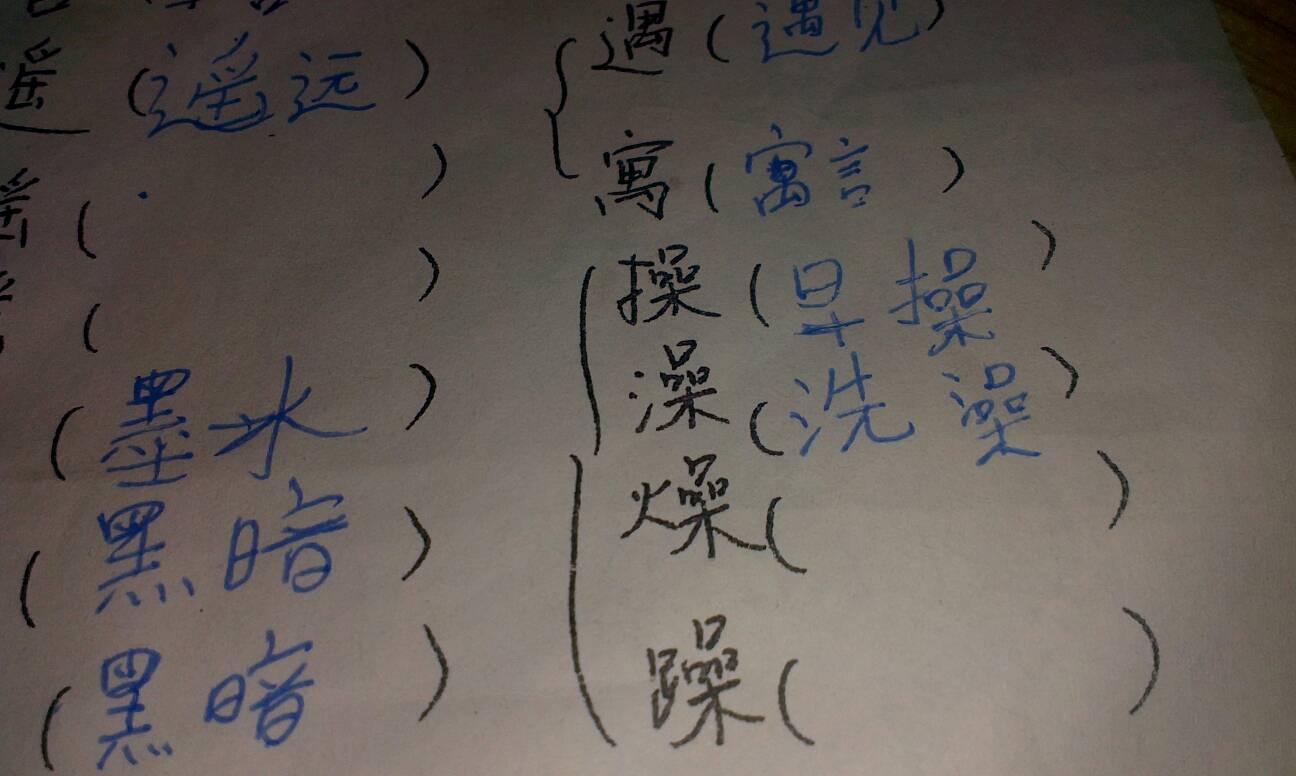 遥（遥远）
（ ）
（ ）
（墨水）
（黑暗）
（黑暗）
遇（遇见）
寓（寓言）
操（早操）
澡（洗澡）
燥（ ）
躁（ ）